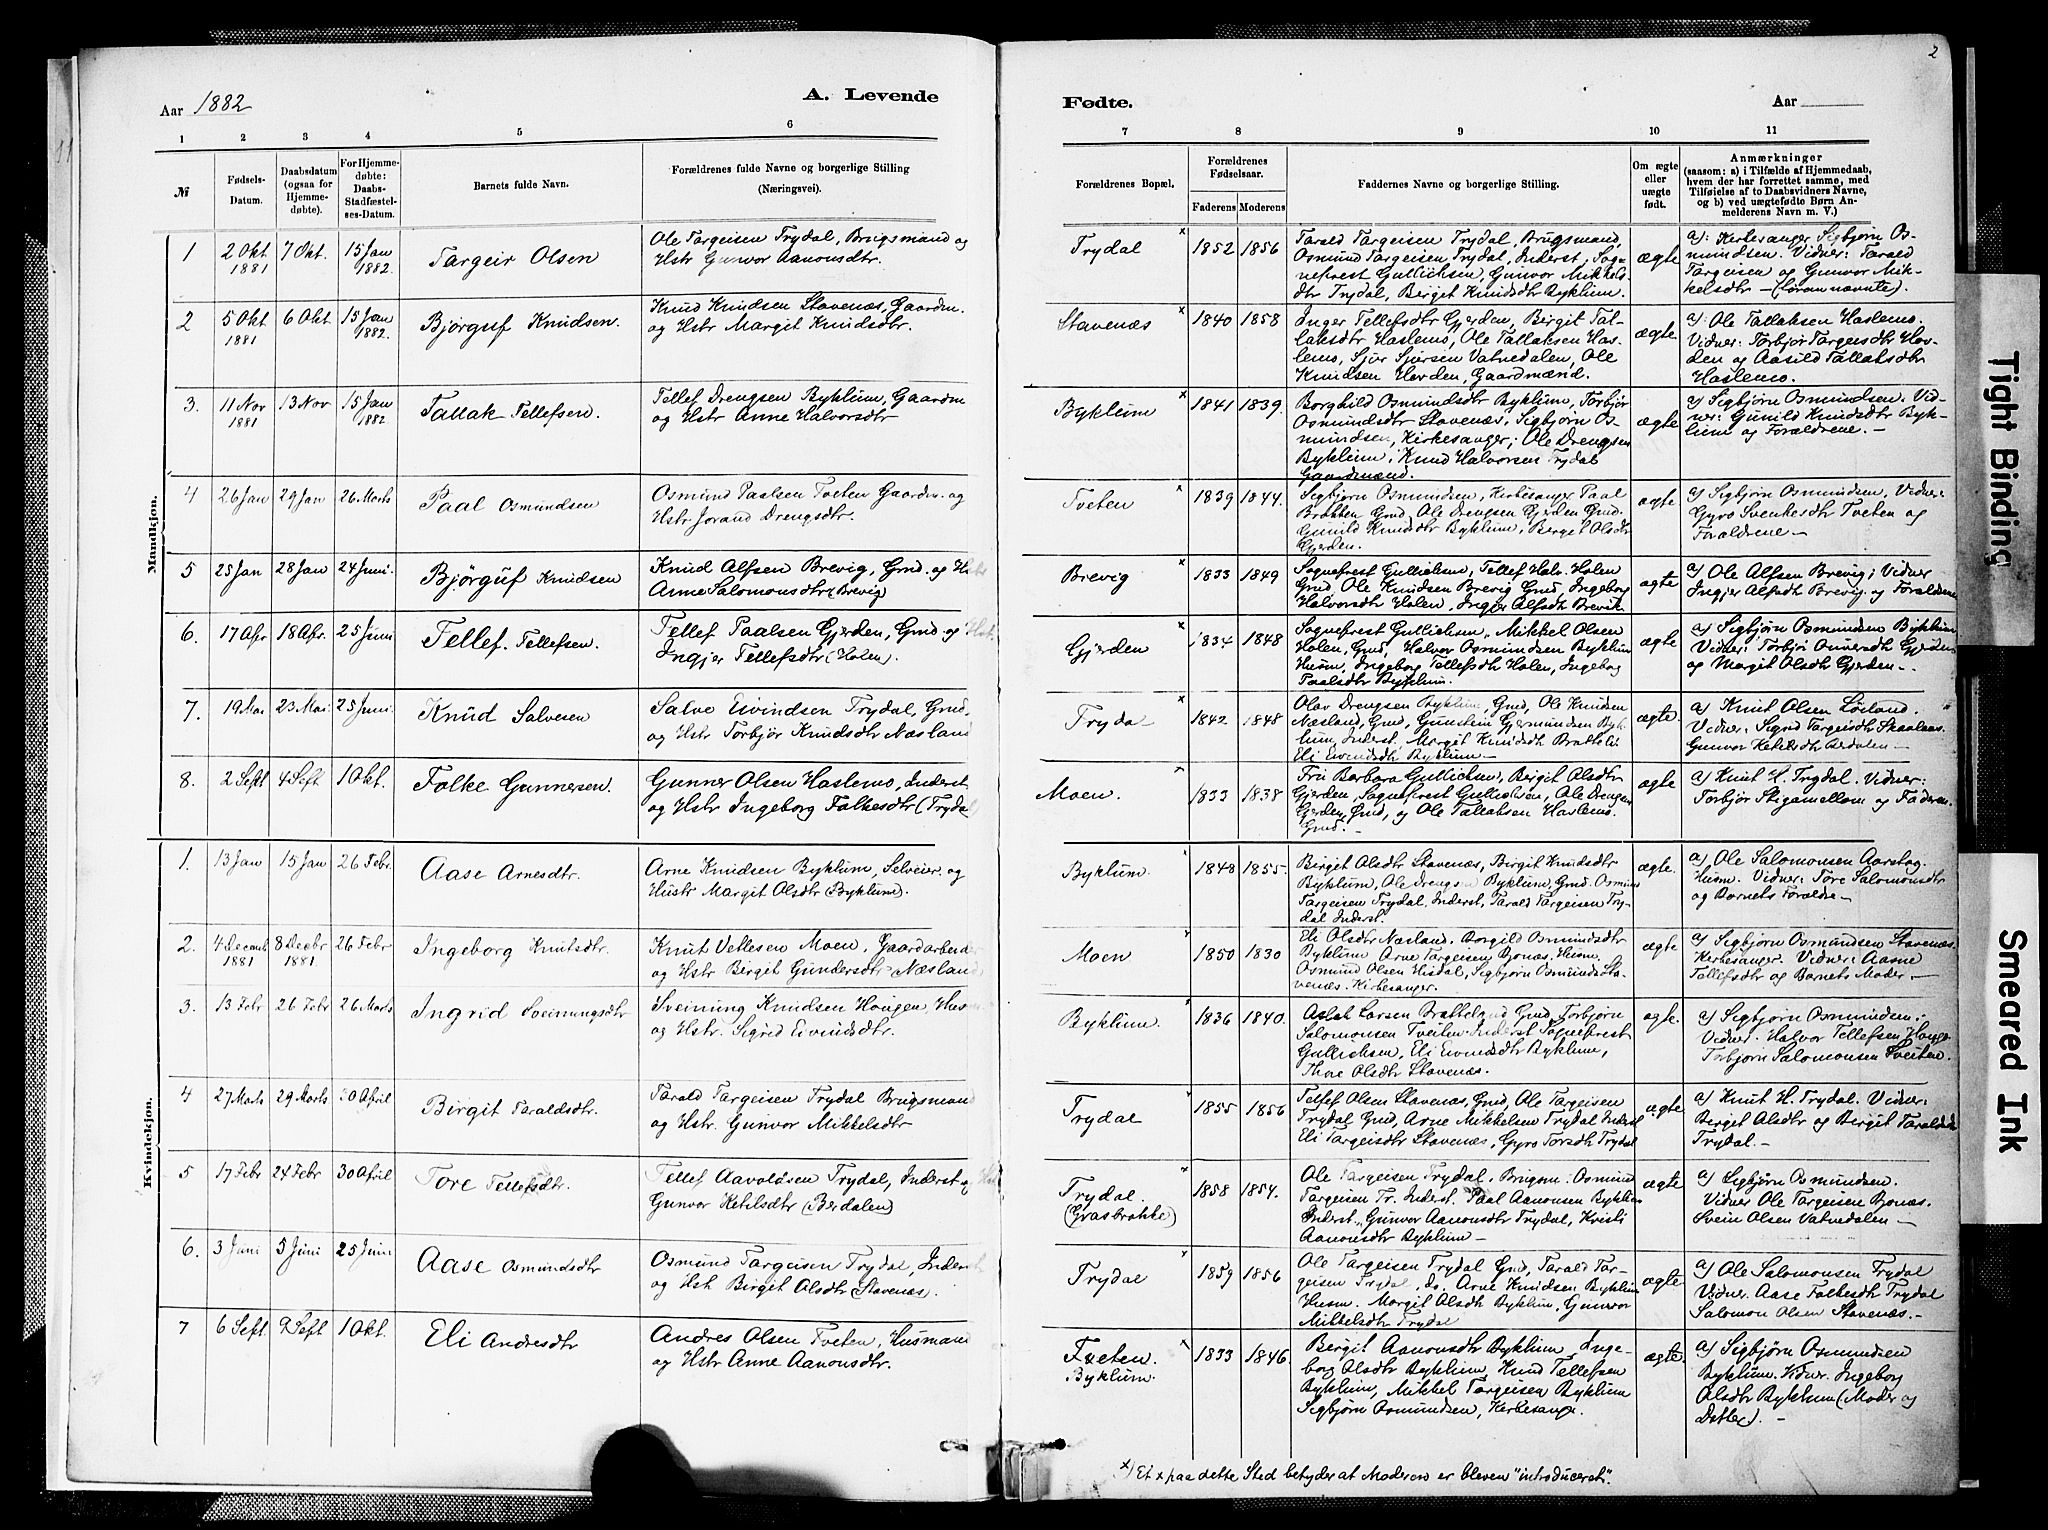 2
Aar 1882
A. Levende
Fødte.
Aar
1 2 3 4 5 6 7 8 9 10 11
№
Fødsels-
Datum.
Daabsdatum
(ogsaa for
Hjemme-
døbte).
For Hjemme-
døbte:
Daabs-
Stadfæstel-
ses-Datum.
Barnets fulde Navn.
Forældrenes fulde Navne og borgerlige Stilling
(Næringsvei).
Forældrenes Bopæl.
Forældrenes
Fødselsaar.
Faderens Moderens
Faddernes Navne og borgerlige Stilling.
Om ægte
eller
uægte
født.
Anmærkninger
(saasom: a) i Tilfælde af Hjemmedaab,
hvem der har forrettet samme, med
Tilføielse af to Daabsvidners Navne,
og b) ved uægtefødte Børn An-
melderens Navn m. V.)
Mandkjøn.
1
2 Okt
1881
7 Okt.
15 Jan
1882.
Targeir Olsen
Ole Targeisen Trydal, Brugsmand og
Hstr Gunvor Aanonsdtr.
Trydal
x
1852 1856
Tarald Targeisen Trydal, Brugsmand,
Osmund Targeisen Trydal, Inderst, Sog-
neprest Gullichsen, Gunvor Mikkels-
dtr Trydal, Birgit Knudsdtr Byklum.
ægte
a): Kirkesanger Sigbjørn Os-
mundsen. Vidner: Tarald
Targeisen og Gunvor Mik-
kelsdtr – (forannævnte).
2
5 Okt
1881
6 Okt
15 Jan
1882.
Bjørguf Knudsen.
Knud Knudsen Stavenæs, Gaardm.
og Hstr Margit Knudsdtr.
Stavenæs
x
1840 1858
Inger Tellefsdtr Gjerden, Birgit Tal-
laksdtr Haslemo, Ole Tallaksen Has-
lemo, Sjur Sjursen Vatnedalen, Ole
Knudsen Hovden, Gaardmænd.
ægte
a): Ole Tallaksen Haslemo.
Vidner: Torbjør Targeisdtr Hov-
den og Aasild Tallaksdtr
Haslemo.
3.
11 Nov
1881
13 Nov
15 Jan
1882
Tallak Tellefsen.
Tellef Drengsen Byklum, Gaardm
og Hstr Anne Halvorsdtr
Byklum
x
1841 1839.
Borghild Osmundsdtr Byklum, Torbjør
Osmundsdtr Stavenæs, Sigbjørn Os-
mundsen, Kirkesanger; Ole Drengsen
Byklum, Knud Halvorsen Trydal
Gaardmænd.
ægte
a) Sigbjørn Osmundsen. Vid-
ner: Gunild Knudsdtr Byk-
lum og Forældrene. –
4
26 Jan
29 Jan
26 Marts
Paal Osmundsen
Osmund Paalsen Tveten Gaardm. og
Hstr Jorand Drengsdtr.
Tveten
x
1839 1844.
Sigbjørn Osmundsen, Kirkesanger, Paal
Brotten Gmd, Ole Drengsen Gjerden Gmd.
Gunild Knudsdtr Byklum, Berget Olsdtr
Gjerden.
ægte
a) Sigbjørn Osmundsen. Vidner:
Gyro Svenkesdtr Tveten og
Forældrene –
5
25 Jan
28 Jan
24 Juni.
Bjørguf Knudsen
Knud Alfsen Brevig, Gmd. og Hstr
Anne Salomonsdtr (Brevig)
Brevig
x
1833 1849
Sogneprest Gullichsen, Tellef Halv. Holen
Gmd, Ole Knudsen Brevig Gmd, Ingeborg
Halvorsdtr Holen, Ingjer Alfsdtr Brevik.
ægte
a) Ole Alfsen Brevig; Vidner
Ingjer Alfsdtr Brevig og Forældrene
6.
17 Apr
18 Apr.
25 Juni
Tellef. Tellefsen.
Tellef Paalsen Gjerden, Gmd. og Hst.
Ingjer Tellefsdtr (Holen).
Gjerden
x
1834 1848
Sogneprest Gullichsen, Mikkel Olsen
Holen, Gmd, Halvor Osmundsen Byklum
Husm, Ingeborg Tellefsdtr Holen, Ingeborg
Paalsdtr Byklum.
ægte
a) Sigbjørn Osmundsen Byklum
Vidner: Torbjør Gjerden
og Margit Olsdtr Gjerden –.
7.
19 Mai
23 Mai
25 Juni.
Knud Salvesen
Salve Eivindsen Trydal, Gmd.
og Hstr Torbjør Knudsdtr Næsland
Trydal
x
1842 1848
Olav Drengsen Byklum, Gmd, Ole Knudsen
Næsland, Gmd, Gunstein Gjermundsen Byk-
lum, Inderst, Margit Knudsdtr Bratteli
Eli Eivindsdtr Byklum –
ægte.
a) Knut Olsen Løiland.
Vidner: Sigrid Targeisdtr
Gunvor Ketilsdtr Berdalen –
8.
2 Sept
4 Sept
1 Okt.
Folke Gunnersen.
Gunner Olsen Haslemo, Inderst
og Hstr Ingeborg Folkesdtr (Trydal)
Moen.
x
1833 1838
Fru Barbara Gullichsen, Birgit Olsdtr
Gjerden, Sogneprest Gullichsen, Ole Drengsen
Gjerden, Gmd, og Ole Tallaksen Haslemo.
Gmd. –
ægte
a) Knut H. Trydal. Vidner:
Torbjør Stigamellom og Faderen.
Kvindekjøn.
1.
13 Jan
15 Jan
26 Febr.
Aase Arnesdtr.
Arne Knudsen Byklum, Selveier og
Hustr Margit Olsdtr (Byklum).
Byklum.
x
1848 1855.
Birgit Olsdtr Stavenæs, Birgit Knudsdtr
Byklum, Ole Drengsen Byklum, Gmd. Osmund
Targeisen Trydal, Inderst, Tarald Targeisen Try-
dal Inderst.
ægte.
a) Ole Salomonsen Aarstog.
Husm. Vidner: Tore Salomonsdtr
og Barnets Forældre –
2.
4 Decemb
1881
8 Decbr
1881.
26 Febr
Ingeborg Knutsdtr.
Knut Vetlesen Moen, Gaardarbeider
og Hstr Birgit Gundersdtr Næsland
Moen
x
1850 1830
Eli Olsdtr Næsland. Borgild Osmundsdtr
Byklum Arne Targeisen Bjonas. Husm.
Osmund Olsen Hisdal, Sigbjørn Osmunds. Sta-
venæs. Kirkesanger.
ægte
a) Sigbjørn Osmundsen Stavenæs.
Kirkesanger. Vidner: Aasne
Tellefsdtr og Barnets Moder –
3.
13 Febr
26 Febr
26 Marts
Ingrid Sveinungsdtr
Sveinung Knudsen Hougen, Husm
og Hstr. Sigrid Eivindsdtr.
Byklum.
x
1836 1840.
Aslak Larsen Gmd, Torbjørn
Salomonsen Tveiten. Inderst Sogneprest
Gullichsen, Eli Eivindsdtr Byklum,
Thore Olsdtr Stavenæs.
ægte.
a) Sigbjørn Osmundsen.
Vidner: Halvor Tellefsen Houge
Torbjørn Salomonsen Tveiten.
4
27 Marts
29 Marts
30 April
Birgit Taraldsdtr.
Tarald Targeisen Trydal Brugsmand
og Hstr. Gunvor Mikkelsdtr
Trydal
x
1855 1856
Tellef Olsen Stavenæs, Gmd, Ole Targeisen
Trydal Gmd, Arne Mikkelsen Trydal Inderst
Eli Targeisdtr Stavenæs, Gyro Torsdtr Trydal
ægte
a) Knut H. Trydal. Vidner:
Birgit Olsdtr og Birgit Taraldsdtr
Trydal. –
5
17 Febr
24 Febr
30 April
Tore Tellefsdtr.
Tellef Aavoldsen Trydal, Inderst og
Gunvor Ketilsdtr (Berdalen)
Trydal
(Grasbrokke)
x
1858 1854.
Ole Targeisen Trydal. Brugsm. Osmund
Targeisen Tr. Inderst. Paal Aanonsen Byklum
Inderst, Gunvor Aanonsdtr Trydal, Kristi
Aanonsdtr Byklum –
ægte
a) Sigbjørn Osmundsen.
Vidner Ole Targeisen Bjonas.
Svein Olsen Vatnedalen –
6.
3 Juni
5 Juni
25 Juni
Aase Osmundsdtr
Osmund Targeisen Trydal, Inderst
og Hstr Birgit Olsdtr (Stavenæs).
Trydal
x
1859 1856
Ole Targeisen Trydal Gmd, Tarald Tar-
geisen Trydal, do, Arne Knudsen Byklum
Husm. Margit Olsdtr Byklum, Gunvor
Mikkelsdtr Trydal
ægte
a) Ole Salomonsen Trydal
Vidner: Aase Folkesdtr Trydal
Salomon Olsen Stavenæs. –
7
6 Sept.
9 Sept
1 Okt.
Eli Andresdtr
Andres Olsen Tveten, Husmand
og Hstr Anne Aanonsdtr.
Tveten.
Byklum.
x
1833 1846.
Bergit Aanonsdtr Byklum, Inge-
borg Olsdtr Byklum, Knud Tellefsen
Byklum, Mikkel Targeisen Byklum
Sigbjørn Osmundsen, Kirkesanger.
ægte.
a) Sigbjørn Osmundsen
Byklum. Vidner. Ingeborg
Olsdtr Byklum (Moder og
Datter). –
x) Et x paa dette Sted betyder at Moderen er bleven "introduceret".
Tight Binding
Smeared Ink